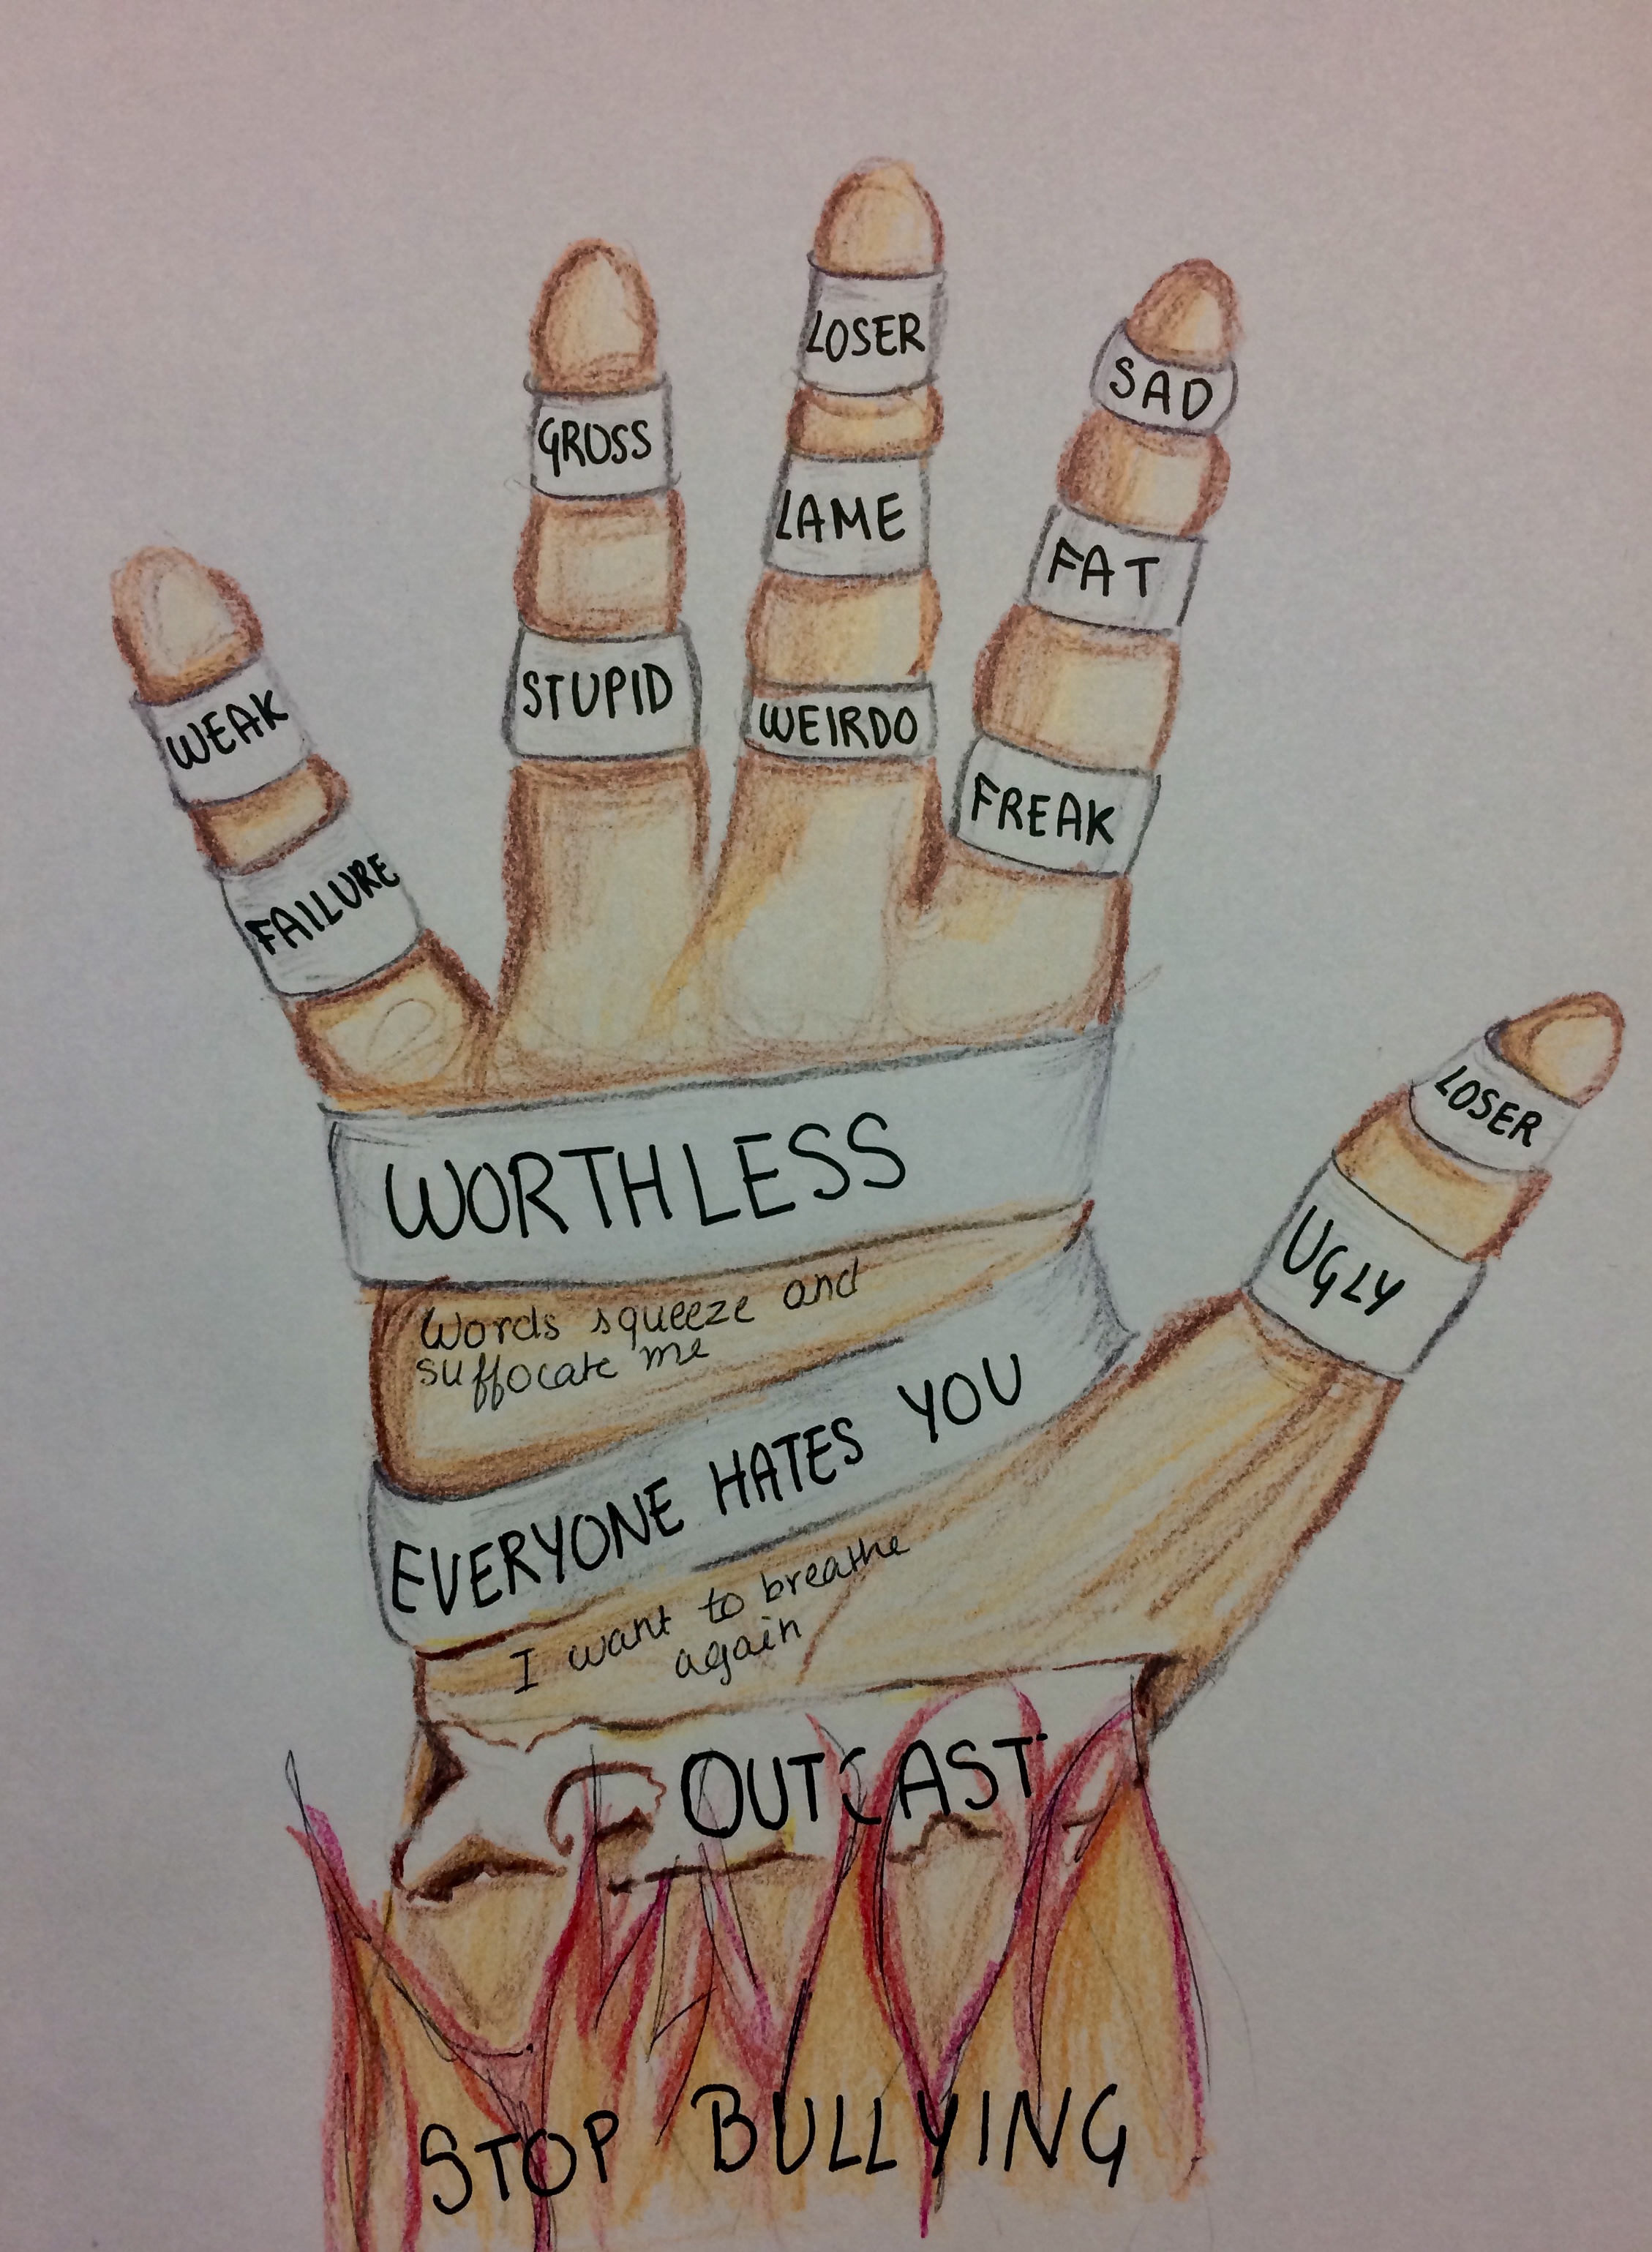 WEAK
FAILURE
GROSS
STUPID
LOSER
LAME
WEIRDO
SAD
FAT
FREAK
LOSER
UGLY
WORTHLESS
Words squeeze and
suffocate me
EVERYONE HATES YOU
I want to breathe
again
OUTCAST
STOP BULLYING